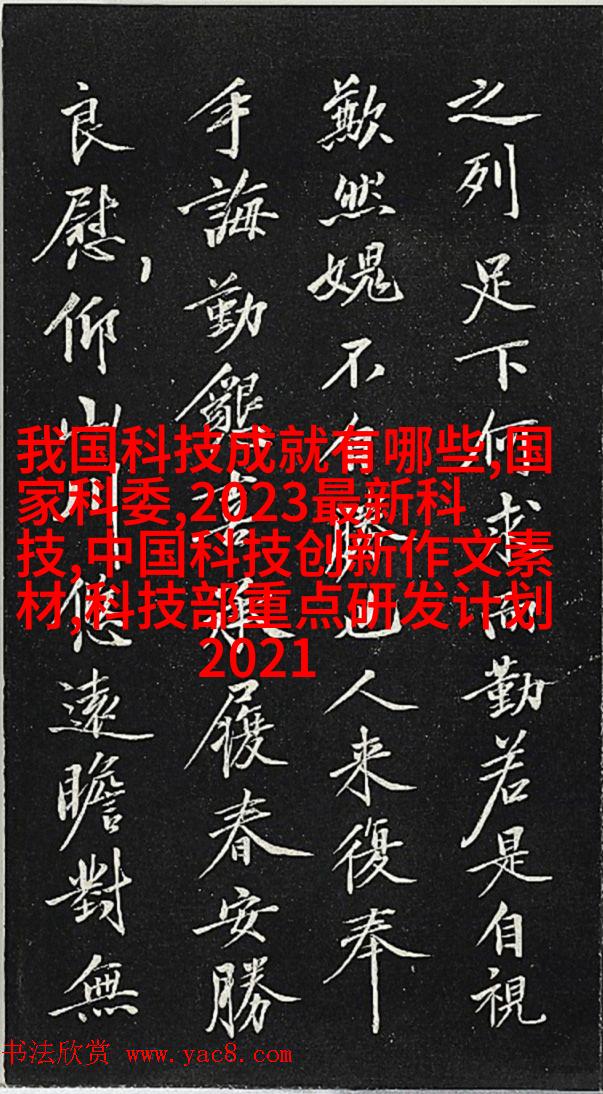 之列足下何求勤若是自視
歉然媿不有勝也人来復奉
手誨勤懇喜承履春安勝
良慰,仰山川悠遠瞻對無
我国科技成就有哪些,国
家科委,2023最新科
技,中国科技创新作文素
材,科技部重点研发计划
2021
书法欣赏 www.yac8.com